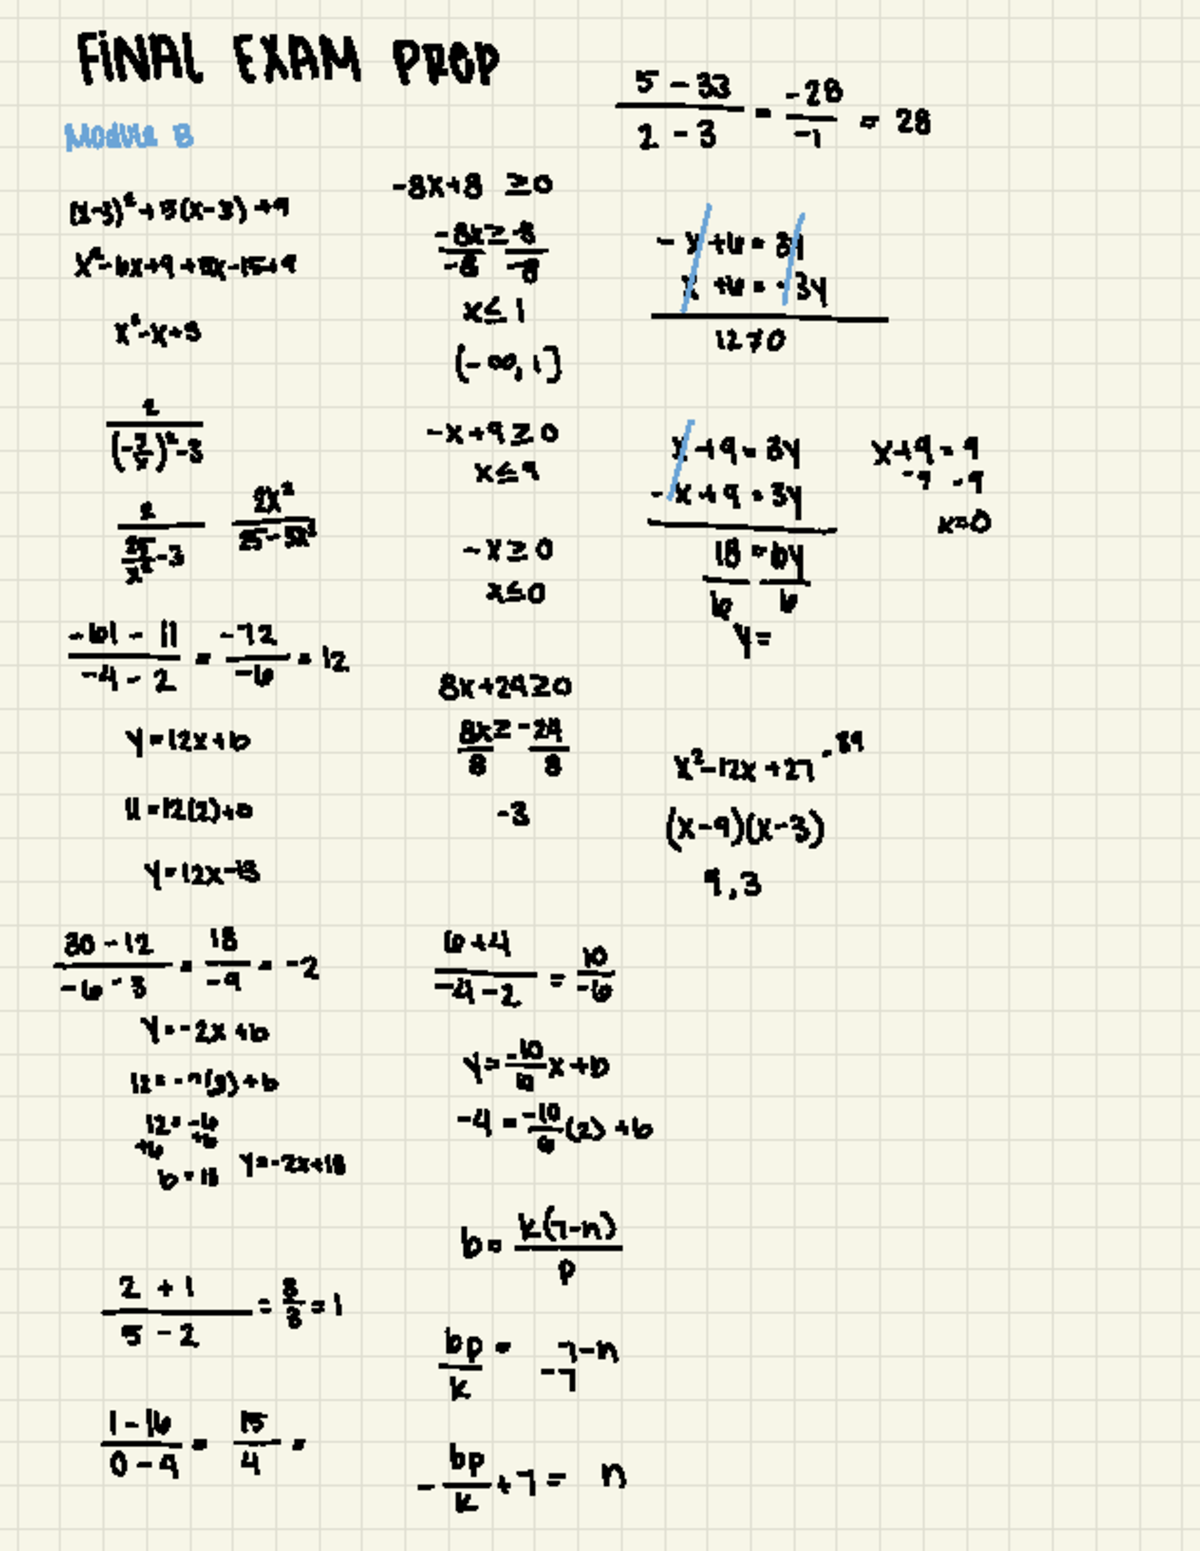 FINAL EXAM PREP
Module B
(x-3)² + 5(x-3) + 9
x²-6x+9+5x-15+9
x²-x+3
2
(-5/x)²-3
2
25/x² - 3
2x²
25-3x²
-61 - 11 / -4 - 2 = -72 / -6 = 12
y=12x+b
11=12(2)+b
y=12x-13
30-12 / -6-3 = 18 / -9 = -2
y=-2x+b
12= -2(3)+b
12= -6
+6 +6
b=18 y=-2x+18
2 + 1 / 5 - 2 = 3/3 = 1
1-16 / 0-4 = 15 / 4 =
-8x+8 ≥0
-8x ≥ -8
-8 -8
x≤ 1
(-∞, 1]
-x+9≥0
x≤9
-x≥0
x≤0
8x+24≥0
8x ≥ -24
8 8
-3
6+4 / -4-2 = 10 / -6
y= -10/6 x +b
-4 = -10/6 (2) +b
b= k(7-n) / p
bp/k = 7-n
-7
- bp/k +7 = n
5 - 33 / 2 - 3 = -28 / -1 = 28
- x +6 = 3y
x +6 = -3y
12≠0
x+9=3y
- x+9=3y
18 = 6y
6 6
y=
x+9=9
-9 -9
x=0
x²-12x+27
(x-9)(x-3)
9,3